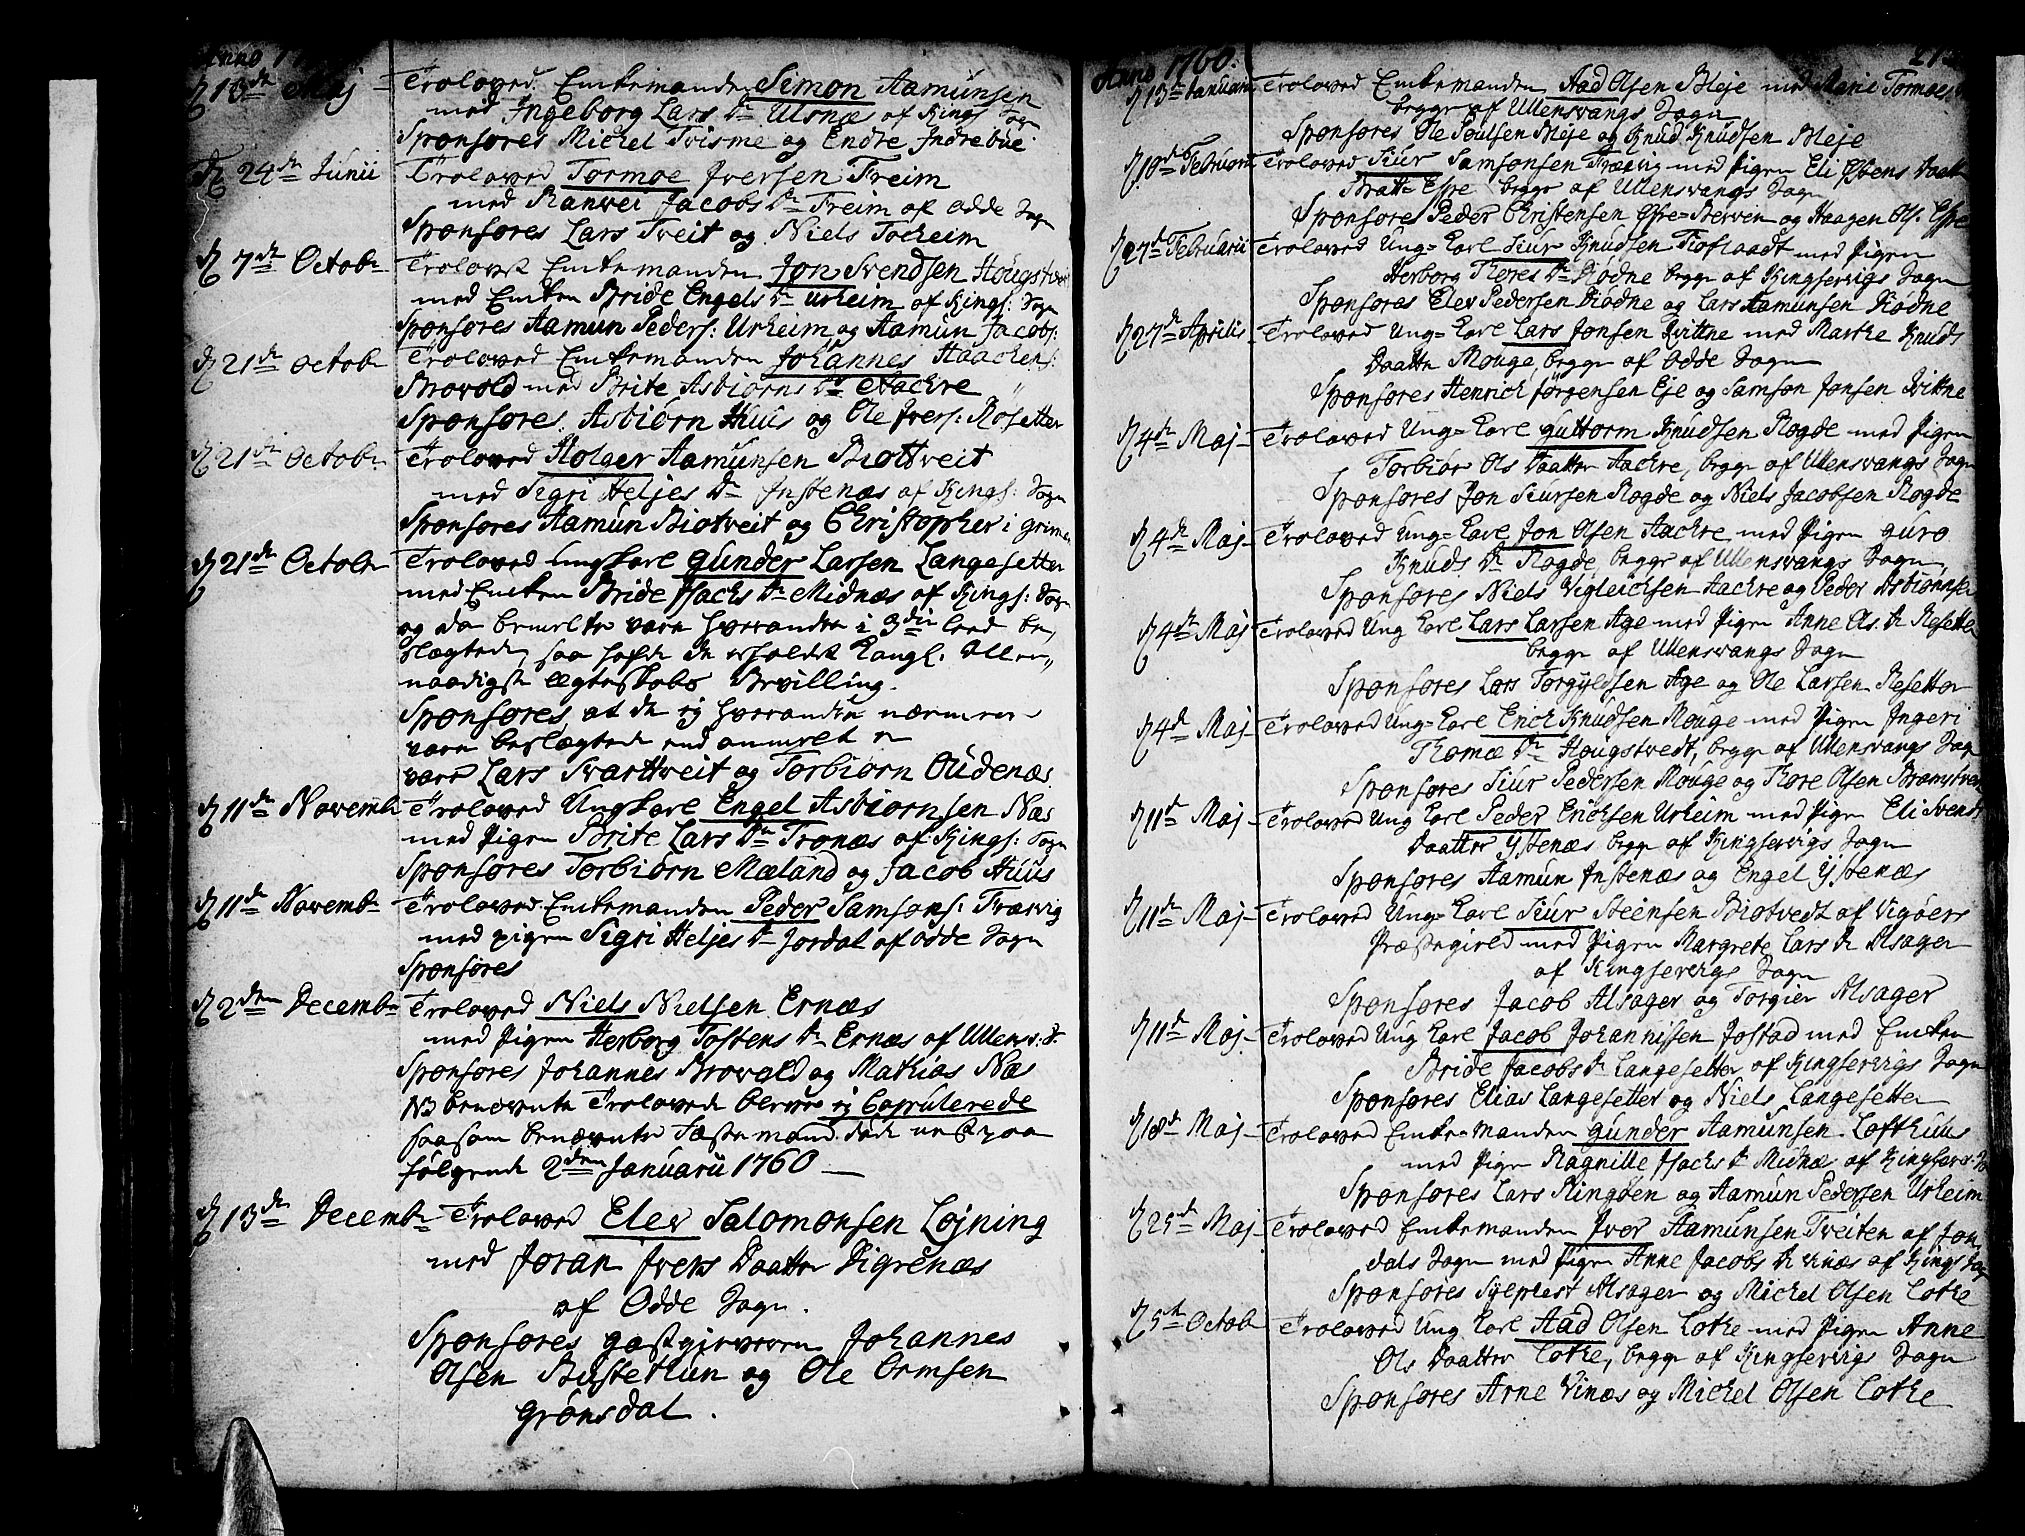 Anno
d 16de Maj Troloved Enkemanden Simon Aamunsen
med Ingeborg Lars Dr Ulsnæs af Kings Sogn
Sponsores Michel Tvisme og Endre Indrebue
d 24de Junii Troloved Tormoe Iversen Freim
med Ranvei Jacobs Dr Freim af Odde Sogn
Sponsores Lars Tveit og Niels Tocheim
d 7de Octobr Trolovet Enkemanden Jon Svendsen
med Enken Bride Engels Dr Urheim af Kings: Sogn
Sponsores Aamun Peders: Urheim og Aamun Jacobs:
d 21de Octobr Troloved Enkemanden Johannes Haachens:
Brovold med Brite Asbiørns Dr Aachre
Sponsores Asbiørn Huus og Ole Ivers: Rosetter
d 21de Octobr Troloved Holger Aamunsen Biottveit
med Sigri Heljes Dr Instenæs af Kings: Sogn
Sponsores Aamun Biotveit og Christopher i Grimen
d 21de Octobr Troloved Ungkarl Gunder Larsen Langesetter
med Enken Bride Isachs Dr Midnæs af Kings: Sogn
og da bemelte vare hverandre i 3die leed be-
slægtede, saa hafde de erholdet Kongl. Aller-
naadigste ægteskabs Bevilling.
Sponsores, at de ej hverandre nærmere
vare beslægtede end anmelt er
vare Lars Svartveit og Torbiørn Oudenæs
d 11de Novembr Troloved Ungkarl Engel Asbiørnsen Næs
med Pigen Brite Lars Dr Tronæs af Kings: Sogn
Sponsores Torbiørn Mæland og Jacob Huus
d 11de Novembr Troloved Enkemanden Peder Samsons: Trævig
med pigen Sigri Heljes Dr Jordal af Odde Sogn
Sponsores
d 2den Decembr Troloved Niels Nielsen Ernæs
med Pigen Herborg Tostens Dr Ernæs af Ullensv: S.
Sponsores Johannes Brovold og Mathias Næs
NB benævnte Trolovede bleve ej Copulerede
saasom benævnte Fæstemand døde
følgende 2den Januarii 1760
d 13de Decembr Troloved Elev Salomonsen Lojning
med Joran Ivers Daatter Digrenæs
af Odde Sogn.
Sponsores gæstgiveren Johannes
Olsen Bustethun og Ole Ormsen
Grønsdal.
Anno 1760.
d 13de Januarii Troloved Enkemanden Aad Olsen Bleje med Marie
begge af Ullensvangs Sogn
Sponsores Ole Poulsen Bleje og Knud Knudsen Bleje
d 10de Februarii Troloved Siur Samsonsen Trævig med Pigen Eli Daatter
Bratt-Espe begge af Ullensvangs Sogn
Sponsores Peder Christensen Espe og Haagen Ols: Espe
d 27de Februarii Troloved Ung-Karl Siur Knudsen Tioflaadt med Pigen
Herborg Thores Dr Diødne begge af Kingservigs Sogn
Sponsores Elev Pedersen Diødne og Lars Aamunsen Diødne
d 27de Aprilis Troloved Ung-Karl Lars Jonsen Qvittne med Marthe Knuds
Daatter Mouge, begge af Odde Sogn
Sponsores Henrich Jørgensen Eje og Samson Jonsen Qvittne
d 4de Maj Troloved Ung-Karl Guttorm Knudsen Rogde med Pigen
Torbiør Ols Daatter Aachre, begge af Ullensvangs Sogn
Sponsores Jon Siursen Rogde og Niels Jacobsen Rogde
d 4de Maj Troloved Ung-Karl Jon Olsen Aachre med Pigen Guro
Knuds Dr Rogde, begge af Ullensvangs Sogn
Sponsores Niels Vigleichsen Aachre og Peder Asbiørnsen
d 4de Maj Troloved Ung Karl Lars Larsen Age med Pigen Anne Ols Dr Resetter
begge af Ullensvangs Sogn
Sponsores Lars Torgyldsen Age og Ole Larsen Resetter
d 4de Maj Troloved Ung-Karl Erich Knudsen Mouge med Pigen Ingeri
Thomæ Dr Hougstvedt, begge af Ullensvangs Sogn
Sponsores Siur Pedersen Mouge og Thore Olsen
d 11de Maj Troloved Ung Karl Peder Erichsen Urheim med Pigen Eli Svends
Daatter Ystenæs begge af Kingservigs Sogn
Sponsores Aamun Instenæs og Engel Ystenæs
d 11de Maj Troloved Ung-Karl Siur Steensen Biotvedt af Vigøers
Præstegield med Pigen Margrete Lars Dr Alsager
af Kingservigs Sogn
Sponsores Jacob Alsager og Torgier Alsager
d 11de Maj Troloved Ung Karl Jacob Johannissen Jostad med Enken
Bride Jacobs Dr Langesetter af Kingservigs Sogn
Sponsores Elias Langesetter og Niels Langesetter
d 18de Maj Troloved Enke-Manden Gunder Aamunsen Lofthuus
med Pigen Ragnille Isachs Dr Midnæs af Kingserv: S
Sponsores Lars Ringøen og Aamun Pedersen Urheim
d 25de Maj Troloved Enkemanden Iver Aamunsen Tveiten af Jon
dals Sogn med Pigen Anne Jacobs Dr Vinæs af Kings Sogn
Sponsores Sylvest Alsager og Michel Olsen Lothe
d 5te Octobr Troloved Ung Karl Aad Olsen Lothe med Pigen Anne
Ols Daatter Lothe, begge af Kingservigs Sogn
Sponsores Arne Vinæs og Michel Olsen Lothe